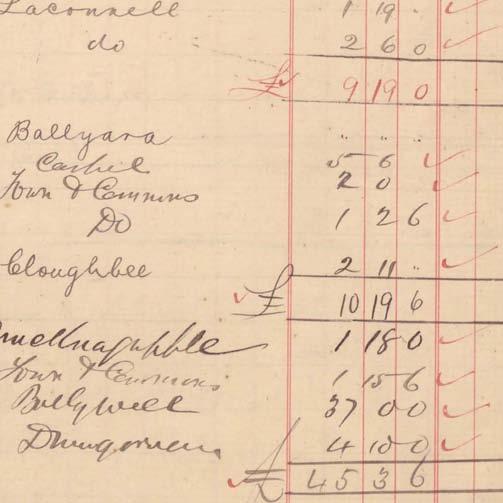 Laconnell 1 19 " ✓
do 2 6 0 ✓
£ 9 19 0
Ballyara " " "
Cashel 5 6 ✓
Town & Commons 2 0 ✓
Do 1 2 6 ✓
Cloughbee 2 11 " ✓
✓ £ 10 19 6
1 18 0 ✓
Town & Commons 1 15 6 ✓
Ballywell 37 0 0 ✓
4 10 0 ✓
✓ £ 45 3 6